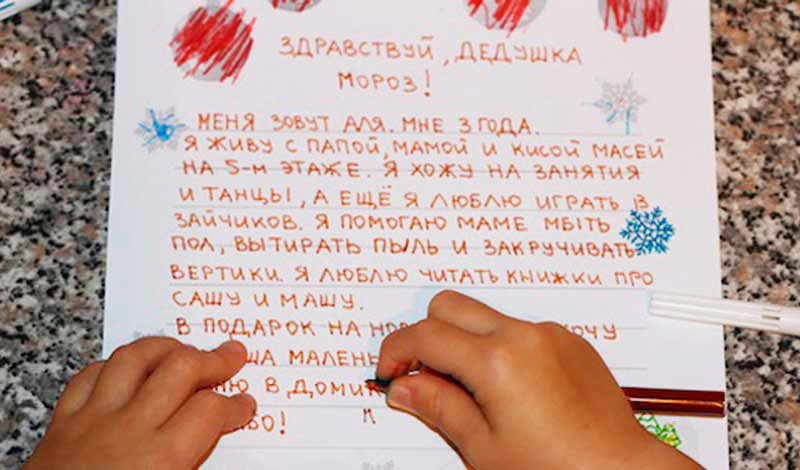 ЗДРАВСТВУЙ, ДЕДУШКА
МОРОЗ!
МЕНЯ ЗОВУТ АЛЯ. МНЕ 3 ГОДА.
Я ЖИВУ С ПАПОЙ, МАМОЙ И КИСОЙ МАСЕЙ
НА 5-М ЭТАЖЕ. Я ХОЖУ НА ЗАНЯТИЯ
И ТАНЦЫ, А ЕЩЁ Я ЛЮБЛЮ ИГРАТЬ В
ЗАЙЧИКОВ. Я ПОМОГАЮ МАМЕ МЫТЬ
ПОЛ, ВЫТИРАТЬ ПЫЛЬ И ЗАКРУЧИВАТЬ
ВЕРТИКИ. Я ЛЮБЛЮ ЧИТАТЬ КНИЖКИ ПРО
САШУ И МАШУ.
В ПОДАРОК НА НОВ ХОЧУ
ША МАЛЕНЬ
НЮ В ДОМИК
БО!